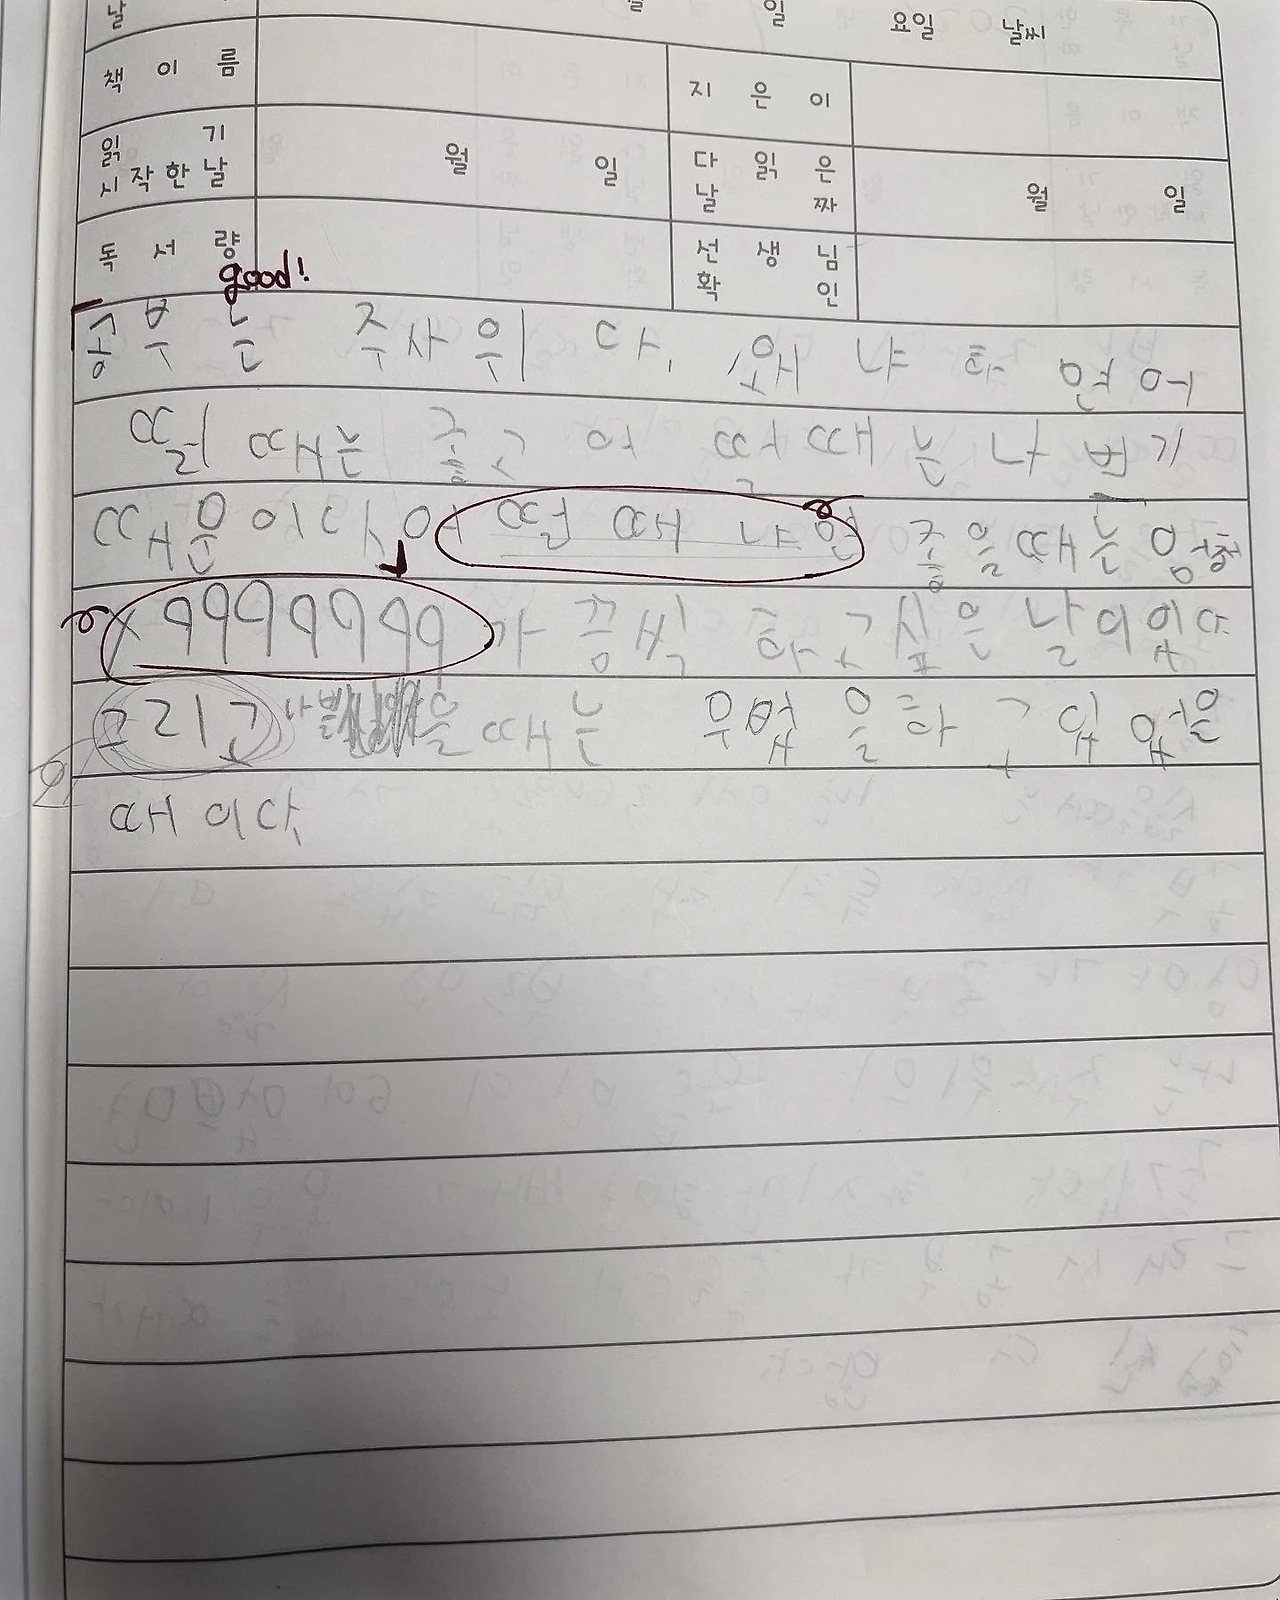 날 월 일 요일 날씨
책 이 름 지 은 이
읽 기 시 작 한 날 월 일 다 읽 은 날 짜 월 일
독 서 량 선 생 님 확 인
good!
공부는 주사위다. 왜냐하면 어
떨때는 좋고 어떡때는 나쁘기
때문이다. 어떨때냐면 좋을때는 엄청
x 9999999가 끔찍하고싶은날이있다
그리고 나쁠 을때는 우법을하고싶었을
때이다.